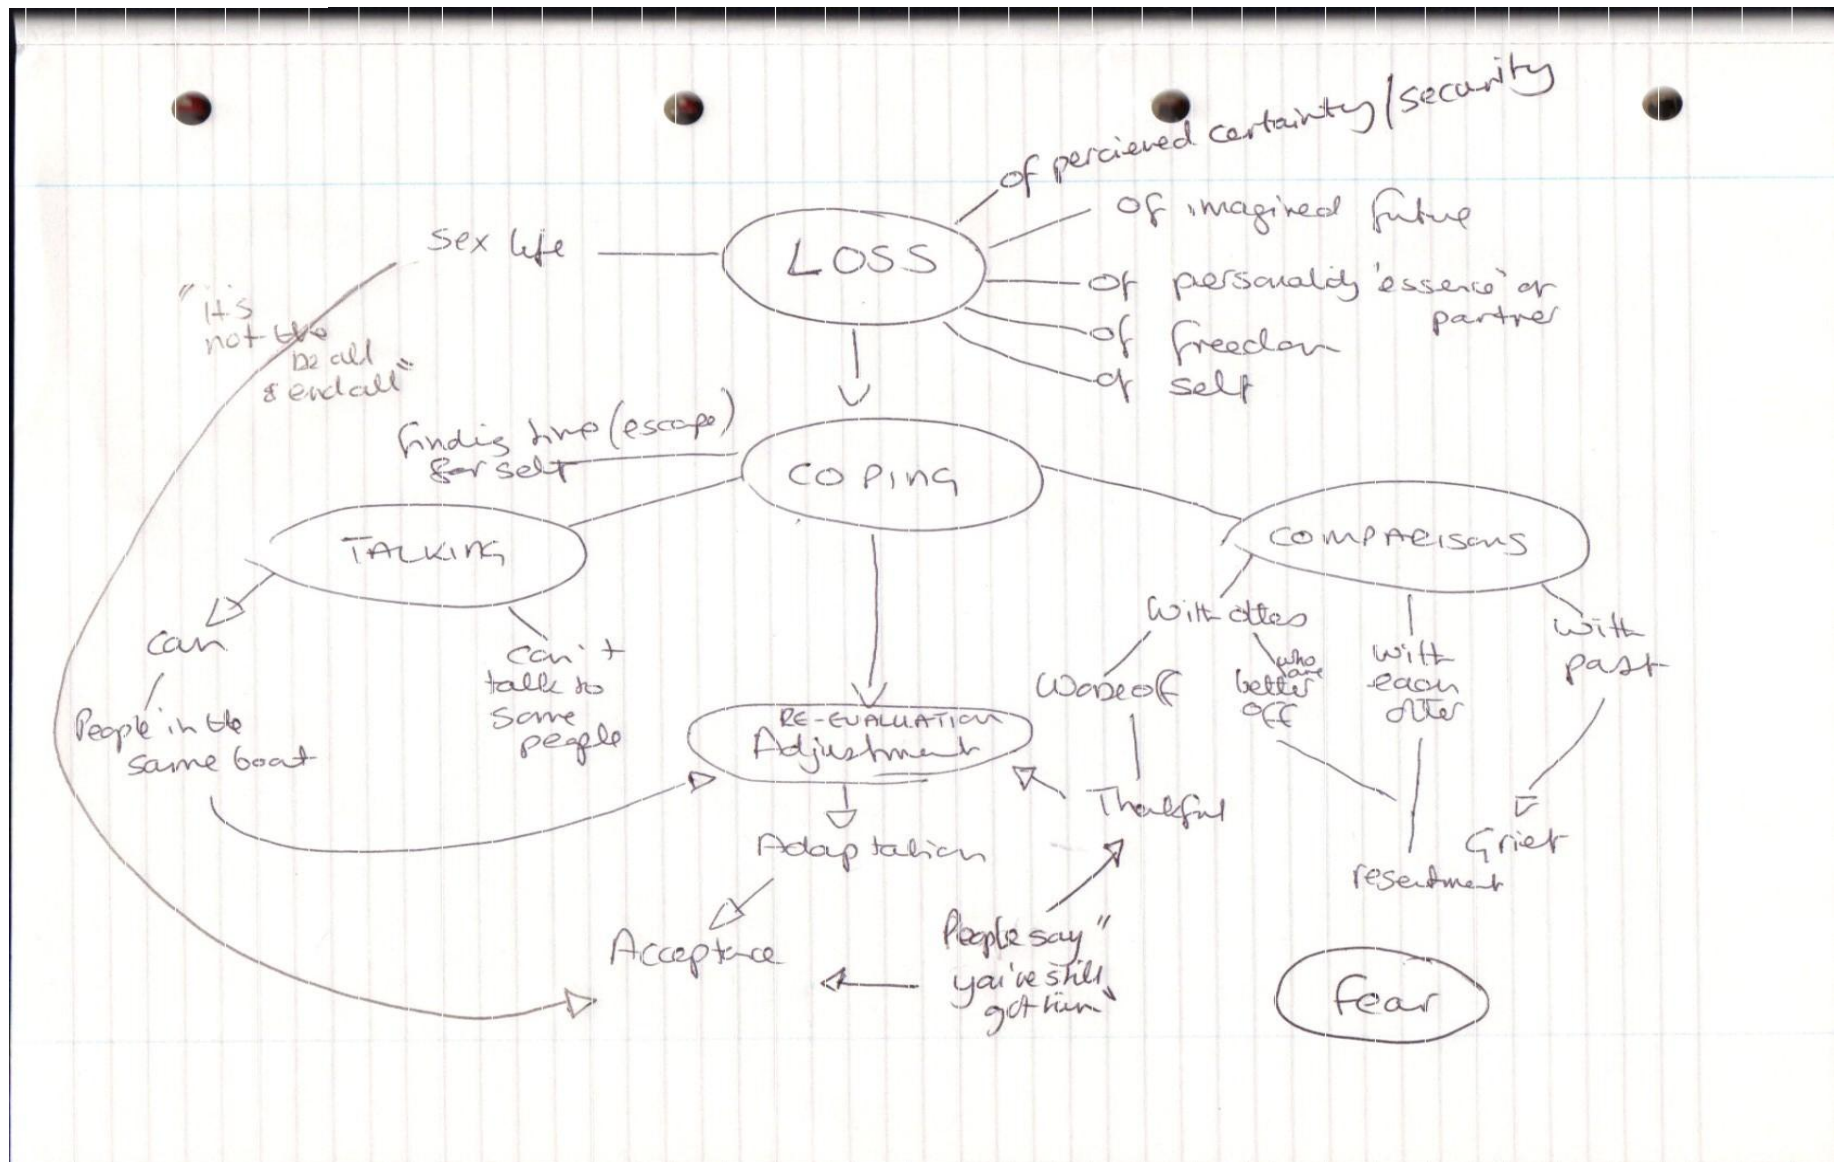 of percieved certainty/security
of imagined future
sex life
LOSS
of personality 'essence' of
partner
"it's
not the
be all
& end all"
of freedom
of self
finding time (escape)
for self
COPING
TALKING
COMPARISONS
can
can't
talk to
some
people
People in the
same boat
With others
Worse off
who are
better
off
with
each
other
with
past
RE-EVALUATION
Adjustment
Thankful
Grief
resentment
Adaptation
Acceptance
People say "
you've still
got him"
fear